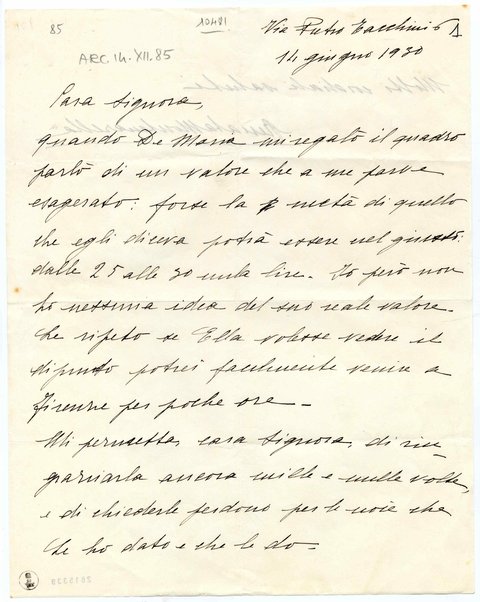 85
10481
Via Pietro Tacchini 6
14 giugno 1930
ARC.14.XII.85
Cara Signora,
quando De Maria mi regalò il quadro
parlò di un valore che a me parve
esagerato: forse la metà di quello
che egli diceva potrà essere nel giusto:
dalle 25 alle 30 mila lire. Io però non
ho nessuna idea del suo reale valore.
Le ripeto se Ella volesse vedere il
dipinto potrei facilmente venire a
Firenze per poche ore –
Mi permetta, cara Signora, di rin
graziarla ancora mille e mille volte,
e di chiederle perdono per le noie che
Le ho dato e che le do –